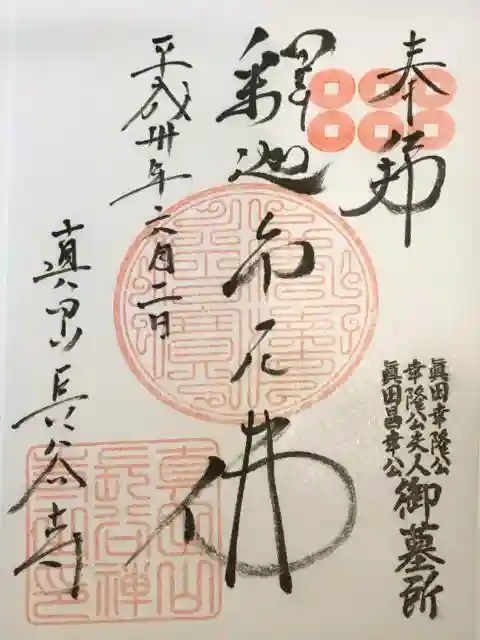 奉拜
眞田幸隆公
幸隆公夫人
眞田昌幸公
御墓所
釋迦牟尼佛
平成卅年六月二日
真田山長谷寺
佛法僧寶
真田山
長谷禅